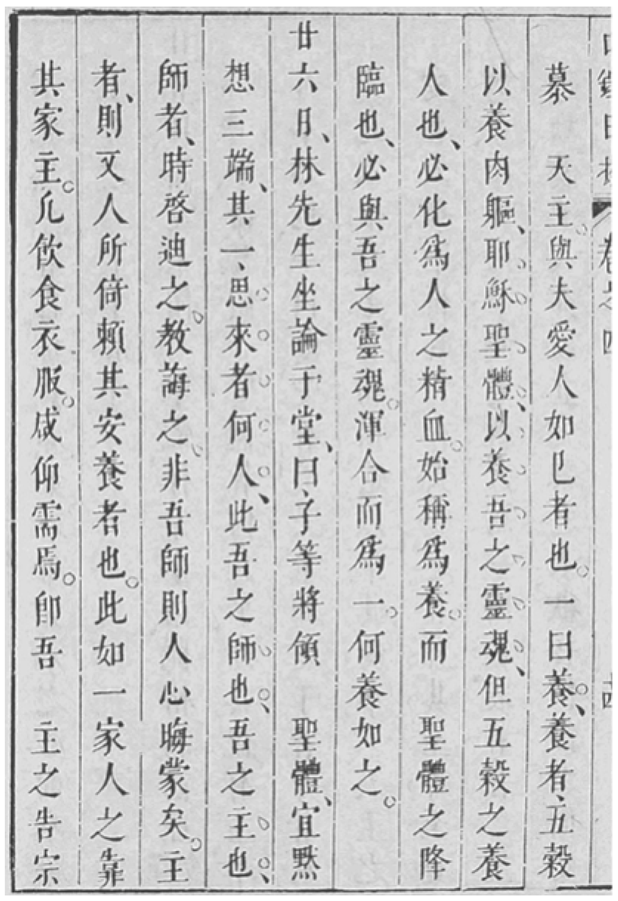 口鐸日抄 卷之四 十四
慕 天主。與夫愛人如己者也。一曰養。養者、五穀
以養肉軀、耶穌聖體、以養吾之靈魂、但五穀之養
人也、必化爲人之精血。始稱爲養。而 聖體之降
臨也、必與吾之靈魂。渾合而爲一。何養如之。
廿六日、林先生坐論于堂、曰、子等將領 聖體、宜默
想三端、其一、思來者何人、此吾之師也、吾之主也、
師者、時啓迪之。教誨之。非吾師則人心晦蒙矣。主
者、則又人所倚賴其安養者也。此如一家人之靠
其家主。凡飲食衣服。咸仰需焉。卽吾 主之告宗